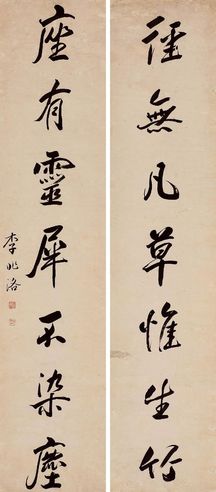 徑無凡草惟生竹
座有靈犀不染塵
李兆洛